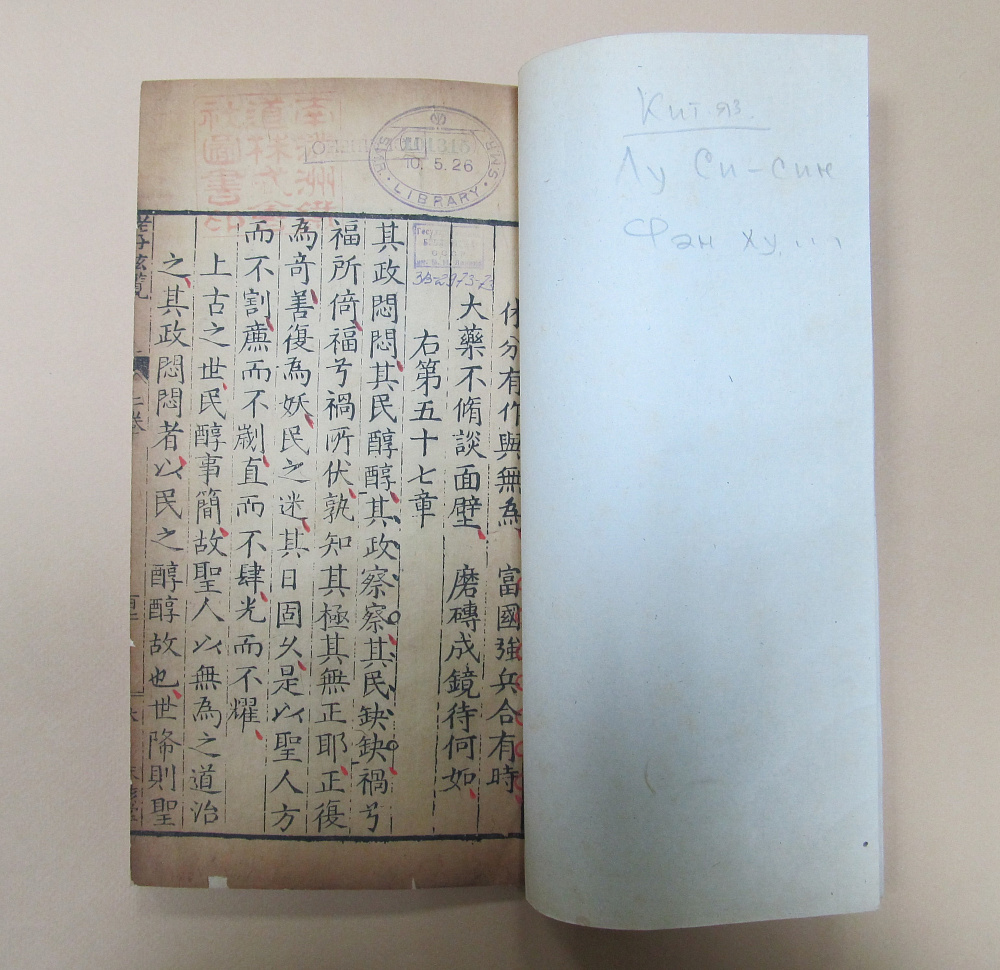 Кит. яз.
Лу Си-син
Фан ху...
休分有作與無為 富國強兵合有時
大藥不脩談面壁 磨磚成鏡待何如
右第五十七章
其政悶悶其民醇醇其政察察其民缺缺禍兮
福所倚福兮禍所伏孰知其極其無正耶正復
為奇善復為妖民之迷其日固久是以聖人方
而不割廉而不劌直而不肆光而不耀
上古之世民醇事簡故聖人以無為之道治
之其政悶悶者以民之醇醇故也世降則聖
老子玄覽
南滿洲鐵
道株式會
社圖書印
10. 5. 26
LIBRARY
S.M.R.